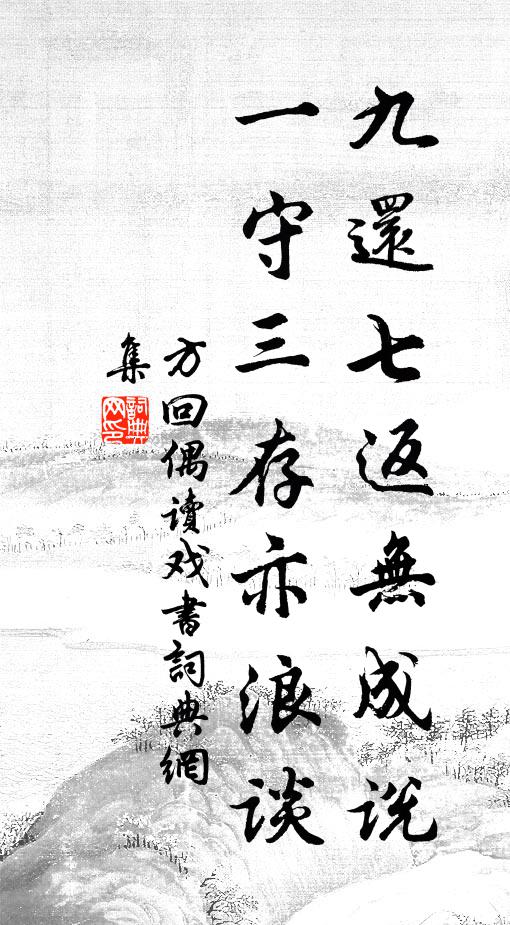 九還七返無成説
一守三存亦浪談
方回偶讀戏書詞典網
集
詞典網印